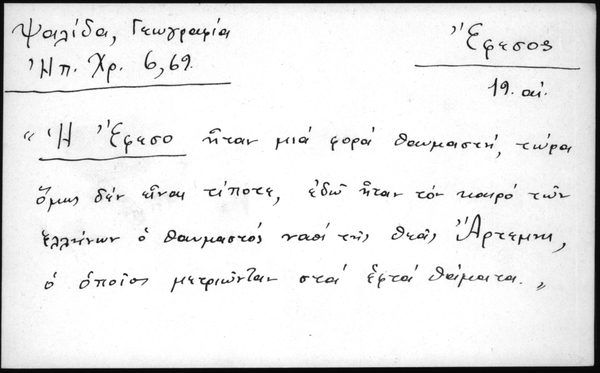 Ψαλίδα, Γεωγραφία
Ἠπ. Χρ. 6, 69.
Ἔφεσος
19. αἰ.
“Ἡ Ἔφεσο ἦταν μιά φορά θαυμαστή, τώρα
ὅμως δέν εἶναι τίποτε, ἐδῶ ἦταν τόν καιρό τῶν
ἑλλήνων ὁ θαυμαστός ναός τῆς θεᾶς Ἄρτεμης,
ὁ ὁποῖος μετριῶνταν στά ἑφτά θάματα.„